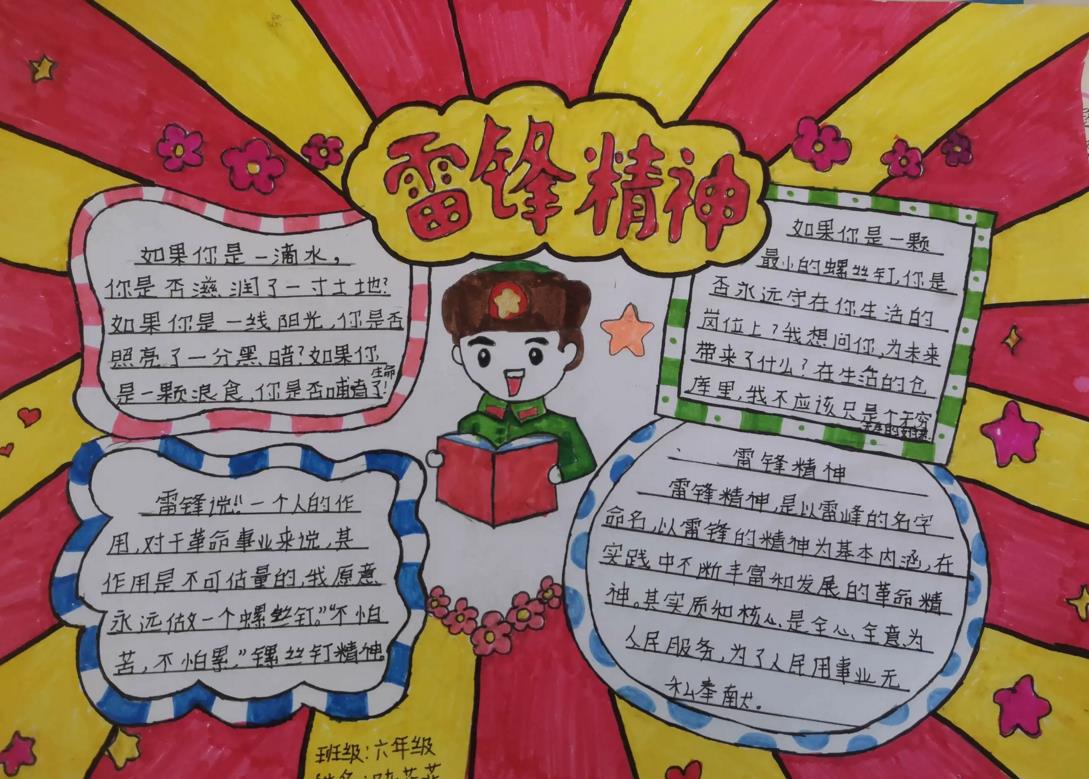 雷锋精神
如果你是一滴水，
你是否滋润了一寸土地?
如果你是一线阳光，你是否
照亮了一分黑暗?如果你
是一颗浪食，你是否哺育了生命!
如果你是一颗
最小的螺丝钉，你是
否永远守在你生活的
岗位上?我想问你，为未来
带来了什么?在生活的仓
库里，我不应该只是个无穷
雷锋说“一个人的作
用，对于革命事业来说，其
作用是不可估量的，我愿意
永远做一个螺丝钉。”“不怕
苦，不怕累。”螺丝钉精神。
雷锋精神
雷锋精神，是以雷峰的名字
命名，以雷锋的精神为基本内涵，在
实践中不断丰富和发展的革命精
神。其实质和核心是全心全意为
人民服务，为了人民用事业无
私奉献。
班级：六年级